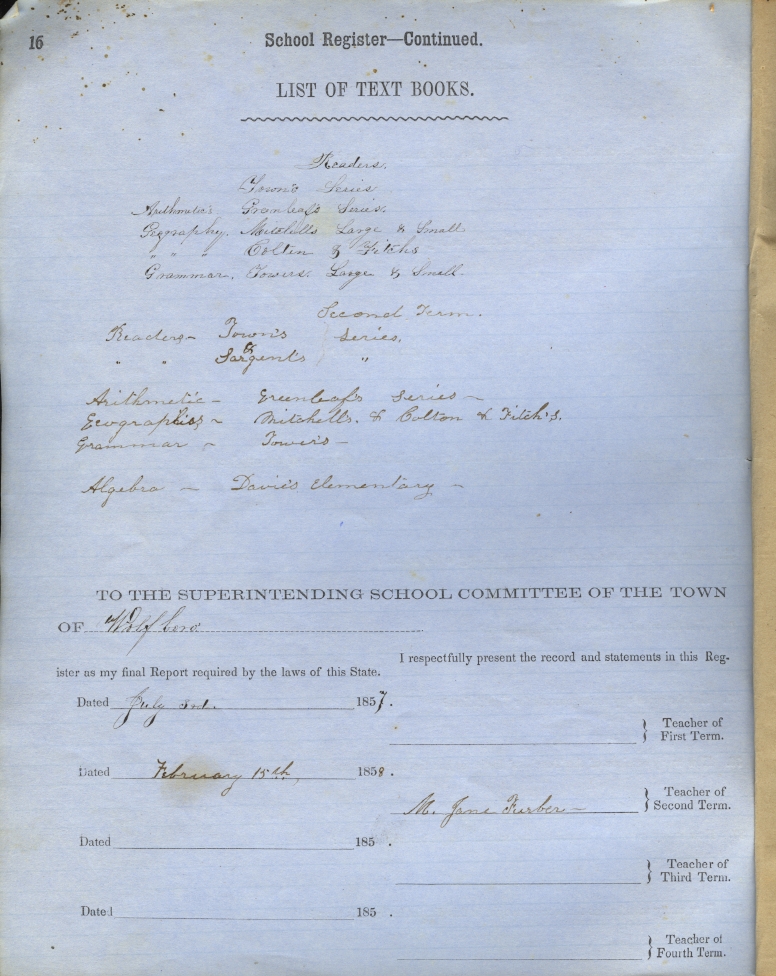 16
School Register—Continued.
LIST OF TEXT BOOKS.
Readers.
Town's Series
Arithmetics Greenleafs Series.
Geography. Mitchells Large & Small
" " " Colten & Fitchs
Grammar. Towers. Large & Small.
Second Term.
Readers - Town's Series.
" " & Sargents "
Arithmetic - Greenleafs Series -
Geographies - Mitchells. & Colton & Fitch's.
Grammar - Tower's -
Algebra - Davie's Elementary -
TO THE SUPERINTENDING SCHOOL COMMITTEE OF THE TOWN
OF Wolfboro
I respectfully present the record and statements in this Reg-
ister as my final Report required by the laws of this State.
Dated July 3rd. 1857.
Teacher of
First Term.
Dated February 15th, 1858.
M. Jane Furber -
Teacher of
Second Term.
Dated 185 .
Teacher of
Third Term.
Dated 185 .
Teacher of
Fourth Term.